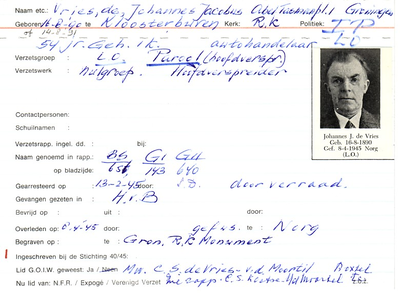 Naam etc. Vries, de, Johannes Jacobus Groningen
Geboren: 16-8-90 te Kloosterburen Kerk: R.K Politiek:
of 14.8.91 LO
54 jr. Geh. 1 k. autohandelaar
Verzetsgroep : L.O. Parool (hoofdverspr.)
Verzetswerk : Hulpgroep. Hoofdverspreider
Contactpersonen:
Schuilnaam :
Verzetsrapp. ingel. dd. : bij:
Naam genoemd in rapp.: BS G1 GH
op bladzijde: 656 143 640
Gearresteerd op : 13-2-45 door: S.D. door verraad.
Gevangen gezeten in : H.v.B
Bevrijd op : uit: door:
Overleden op : 8.4-45 door: gefus. te : Norg
Begraven op : te: Gron. R.K Monument
Ingeschreven bij de Stichting 40/45:
Lid G.O.I.W. geweest: Ja / Neen Mw. C. S. de Vries - v.d.
Nu lid van: N.F.R. / Expogé / Verenigd Verzet
Johannes J. de Vries
Geb. 16-8-1890
Gef. 8-4-1945 Norg
(L.O.)